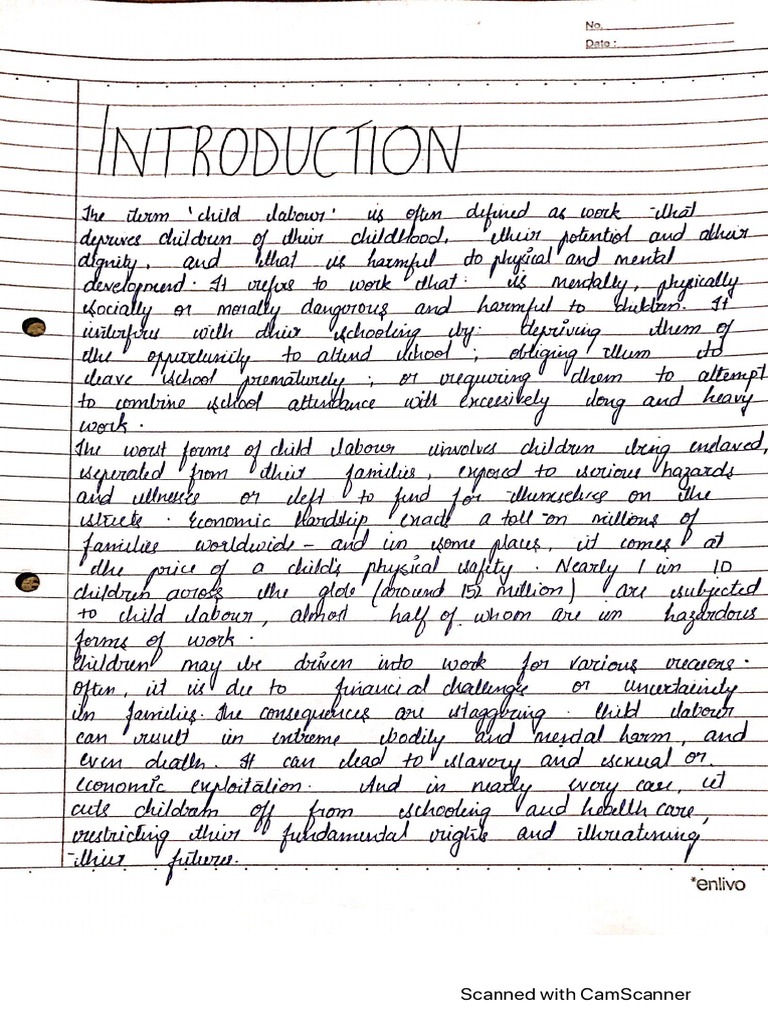 No.
Date :
INTRODUCTION
The term 'child labour' is often defined as work that
deprives children of their childhood, their potential and their
dignity, and that is harmful to physical and mental
development. It refers to work that: is mentally, physically
socially or morally dangerous and harmful to children. It
interferes with their schooling by: depriving them of
the opportunity to attend school ; obliging them to
leave school prematurely ; or requiring them to attempt
to combine school attendance with excessively long and heavy
work.
The worst forms of child labour involves children being enslaved,
seperated from their families, exposed to serious hazards
and illnesses or left to fend for themselves on the
streets. Economic hardship exacts a toll on millions of
families worldwide - and in some places, it comes at
the price of a child's physical safety. Nearly 1 in 10
children across the globe (around 152 million) are subjected
to child labour, almost half of whom are in hazardous
forms of work.
Children may be driven into work for various reasons.
Often, it is due to financial challenges or uncertainity
in families. The consequences are staggering. Child labour
can result in extreme bodily and mental harm, and
even death. It can lead to slavery and sexual or
economic exploitation. And in nearly every case, it
cuts children off from schooling and health care,
restricting their fundamental rights and threatening
their futures.
*enlivo
Scanned with CamScanner